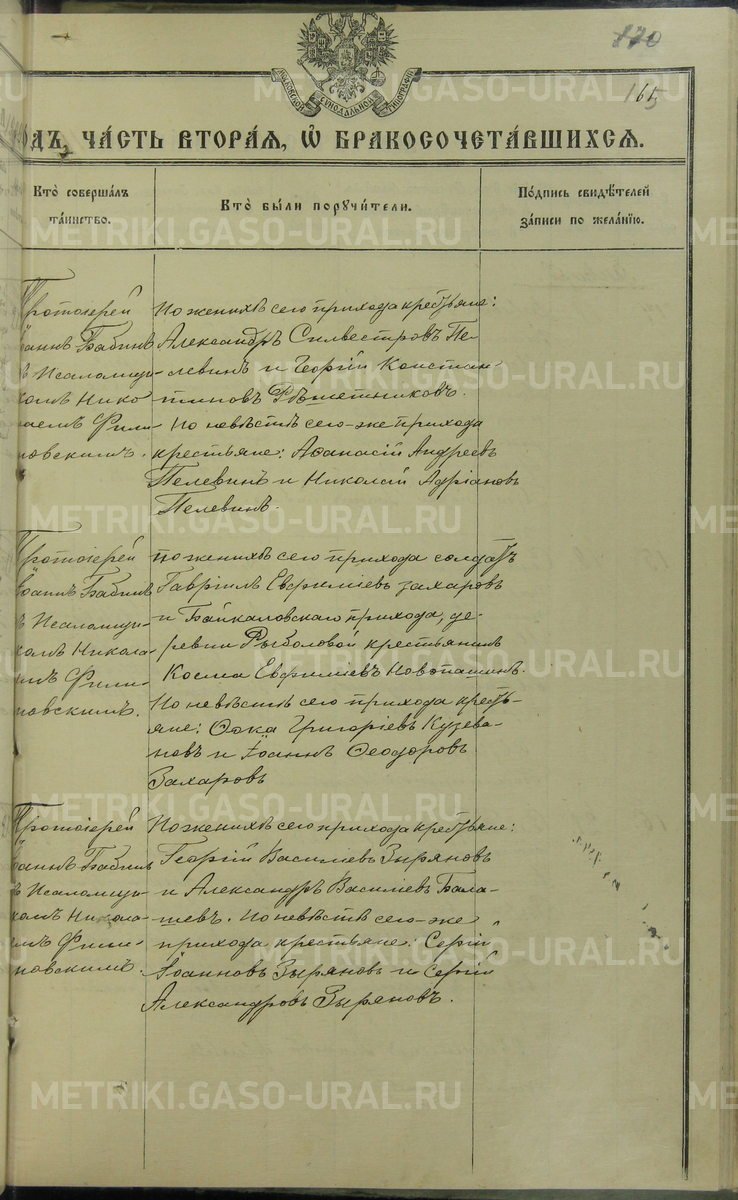 170
165
МОСКОВСКОЙ СѴНОДАЛЬНОЙ ТИПОГРАФІИ
одъ, ча́сть втора́я, ѡ҆ бракосочета́вшихся.
Кто̀ соверша́лъ
та́инство.
Кто̀ бы́ли порꙋчи́тели.
По́дпись свидѣ́телей
за́писи по жела́нїю.
Протоіерей
Іоаннъ Бабинъ
съ Псаломщи-
комъ Нико
лаемъ Фили-
повскимъ.
По женихѣ сего прихода крестьяне:
Александръ Силвестровъ Пе-
левинъ и Георгій Констан-
тиновъ Рѣшетниковъ.
По невѣстѣ сего-же прихода
крестьяне: Аѳанасій Андреевъ
Пелевинъ и Николай Адріановъ
Пелевинъ.
Протоіерей
Іоаннъ Бабинъ
съ Псаломщи-
комъ Никола-
емъ Фили-
повскимъ.
По женихѣ сего прихода солдатъ
Гавріилъ Евфиміевъ Захаровъ
и Байкаловскаго прихода, де-
ревни Рыболовой крестьянинъ
Косма Евфиміевъ Новопашинъ.
По невѣстѣ сего прихода кресть-
яне: Ѳока Григоріевъ Кузева-
новъ и Іоаннъ Ѳеодоровъ
Захаровъ
Протоіерей
Іоаннъ Бабинъ
съ Псаломщи-
комъ Никола-
емъ Фили-
повскимъ.
По женихѣ сего прихода крестьяне:
Георгій Василіевъ Зыряновъ
и Александръ Василіевъ Бала-
шевъ. По невѣстѣ сего-же
прихода крестьяне: Сергій
Іоанновъ Зыряновъ и Сергій
Александровъ Зыряновъ.
METRIKI.GASO-URAL.RU